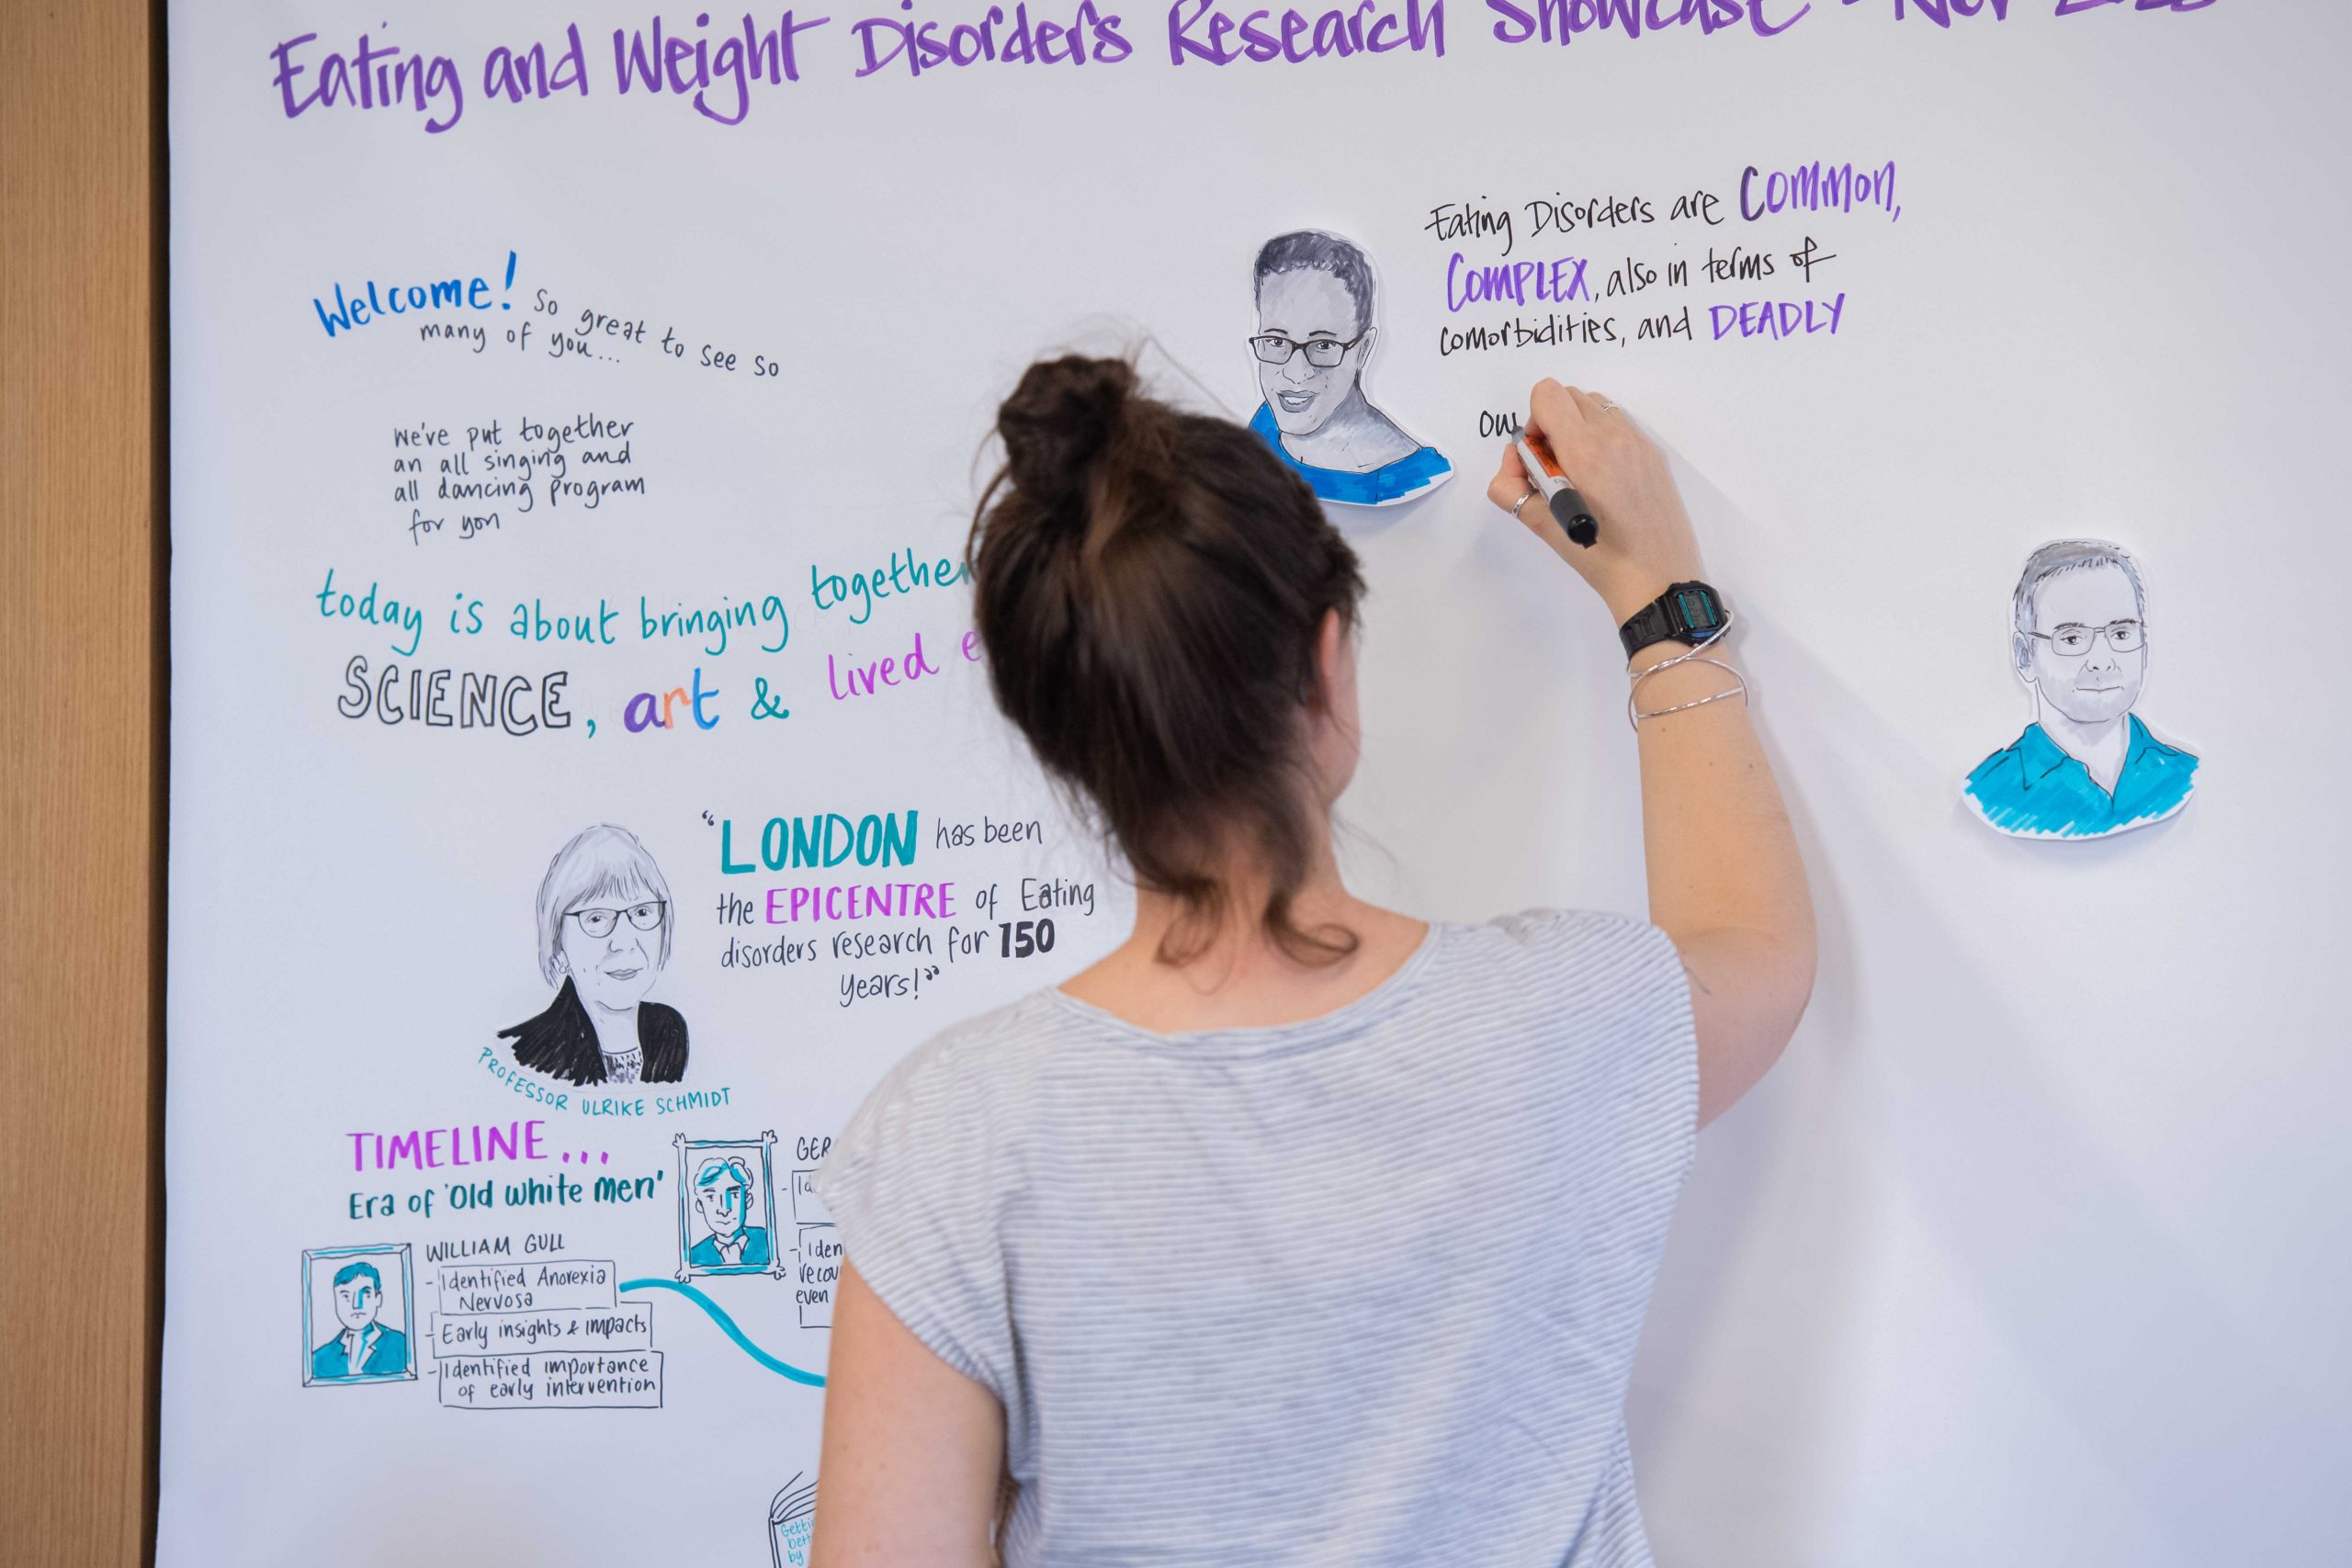 Eating and Weight Disorders Research Showcase - Nov
Welcome! So great to see so
many of you...
we've put together
an all singing and
all dancing program
for you
today is about bringing together
SCIENCE, art & lived
"LONDON has been
the EPICENTRE of Eating
disorders research for 150
years!"
PROFESSOR ULRIKE SCHMIDT
TIMELINE...
Era of 'Old white men'
WILLIAM GULL
- Identified Anorexia
Nervosa
- Early insights & impacts
- Identified importance
of early intervention
even
by
Eating Disorders are COMMON,
COMPLEX, also in terms of
comorbidities, and DEADLY